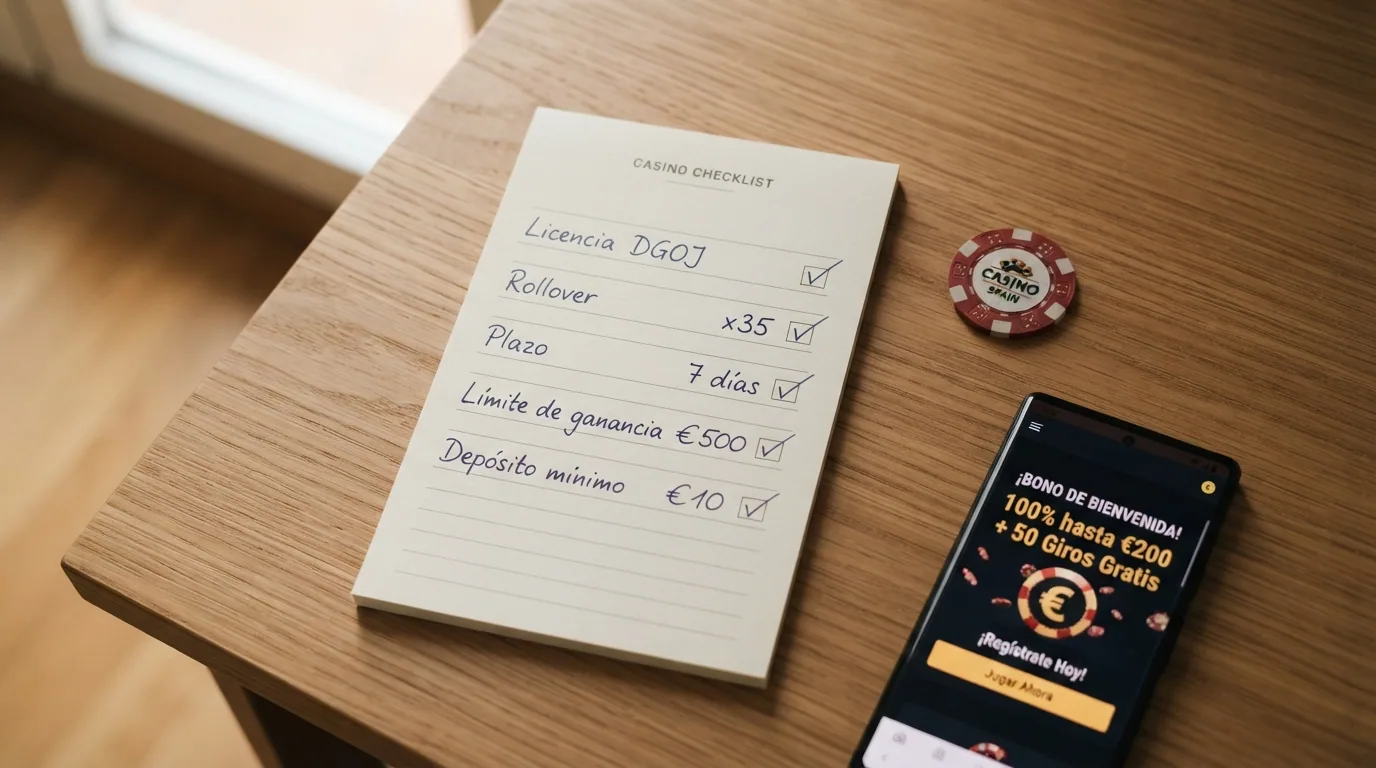 CASINO CHECKLIST
Licencia DGOJ
Rollover x35
Plazo 7 días
Límite de ganancia €500
Depósito mínimo €10
CASINO
SPAIN
¡BONO DE BIENVENIDA!
100% hasta €200
+ 50 Giros Gratis
€
¡Regístrate Hoy!
Jugar Ahora